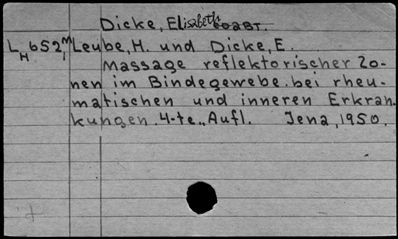 Dicke, Elisabeth
L H 652 M 1 Leube, H. und Dicke, E.
Massage reflektorischer Zo-
nen im Bindegewebe bei rheu-
matischen und inneren Erkran-
kungen. 4-te. Aufl. Jena, 1950.